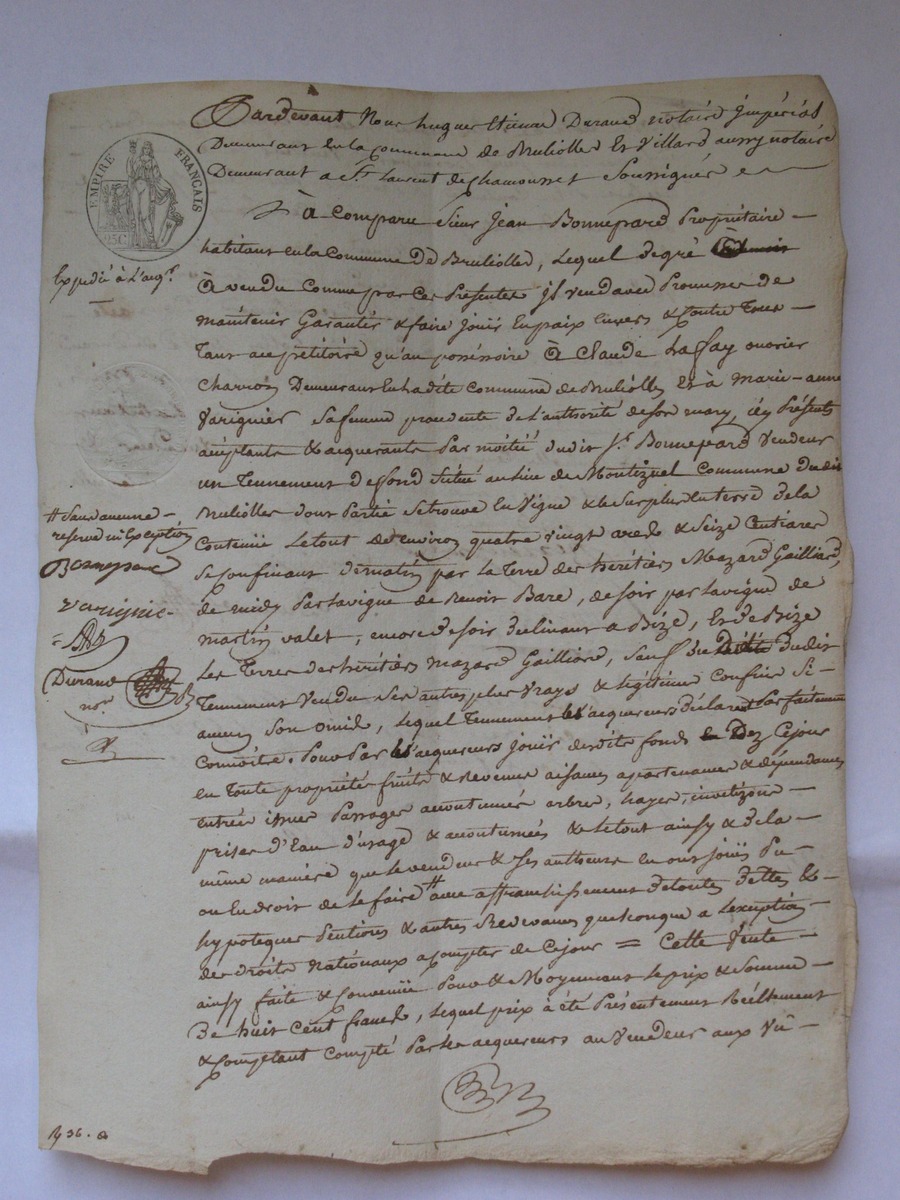 Pardevant Nous hugues Etienne Durand notaire Jmpérial
Demeurant en la Commune de Brulliolles Et Villard aussy notaire
Demeurant a St. Laurent de Chamousset Soussignés
EMPIRE FRANÇAIS
25C
à Comparu Sieur Jean Bonnepard Propriétaire
habitant en la Commune De Brulliolles, Lequel de gré
Expedié à L'acq.r
à vendu Comme par Ces Présentes Jl vend avec Promesse de
maintenir Garantir & faire Jouïr En paix Envers & Contre Tous
Tant au pétitoire qu'au possessoire à Claude Lafay ouvrier
Charron Demeurant En Ladite Commune de Brulliolles Et à Marie-anne
Varignier Sa femme procedente de L'authorité de son mary, icy Présents
acceptants & acquerants Par moitié dudit Sr. Bonnepard Vendeur
un Tennement De fond Situé au Lieu de Montizuel Commune Dudit
Brulliolles dont Partie se trouve En Vigne & le Surplus en terre de la
Contenüe Le tout de environ quatre vingt ares & Seize Centiares
Se Confinant De matin par La Terre des héritiers Mazard Gailliard,
de midy Par la vigne de Benoit Bare, de soir par la vigne de
martin valet, encore de soir declinant a Bize, Et de Bize
Les Terres des héritiers mazard Gailliard, Sauf dudit
Tennement Vendu Ses autres plus vrays & Légitimes Confins Si
aucuns Son omis, Lequel Tennement les acquereurs Déclarent Parfaitement
Connoitre. Pour Par les acquereurs jouïr desdits fonds Dez Cejour
en Toute propriété fruits & revenus aisances appartenances & dépendances
entrées issues Passages accoutumés arbres, hayes,
prises d'Eau d'usage & accoutumées & le tout ainsy & de la
même maniere que le vendeur & Ses autheurs En ont joüis Pu
ou En droit de Le faire # avec affranchissement de toutes dettes &
hypoteques Pentions & autres Redevances quelconques a L'exception
des droits Nationaux a Compter de Cejour = Cette Vente
ainsy faite & Convenüe Pour & Moyennant Le prix & Somme
De huit Cent francs, Lequel prix à été Présentement Réellement
& Comptant Compté Par les acquereurs au Vendeur aux Vû
# Sans aucune
reserve ni Exception
Bonnepard
Varignie
Durand
no.re